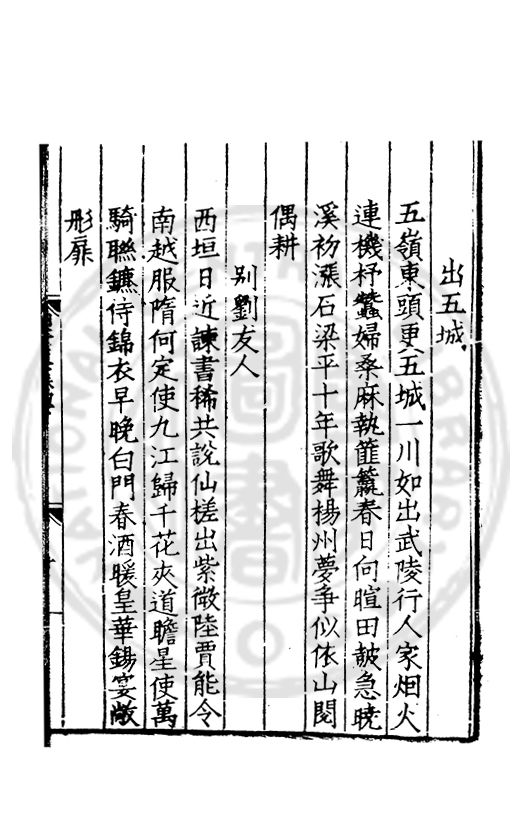 出五城
五嶺東頭更五城一川如出武陵行人家烟火
連機杼蠶婦桑麻執篚籯春日向暄田皷急曉
溪初漲石梁平十年歌舞楊州夢爭似依山閱
偶耕
别劉友人
西垣日近諫書稀共說仙槎出紫微陸賈能令
南越服隋何定使九江歸千花夾道瞻星使萬
騎聮鑣侍錦衣早晚白門春酒暖皇華錫宴敞
彤扉